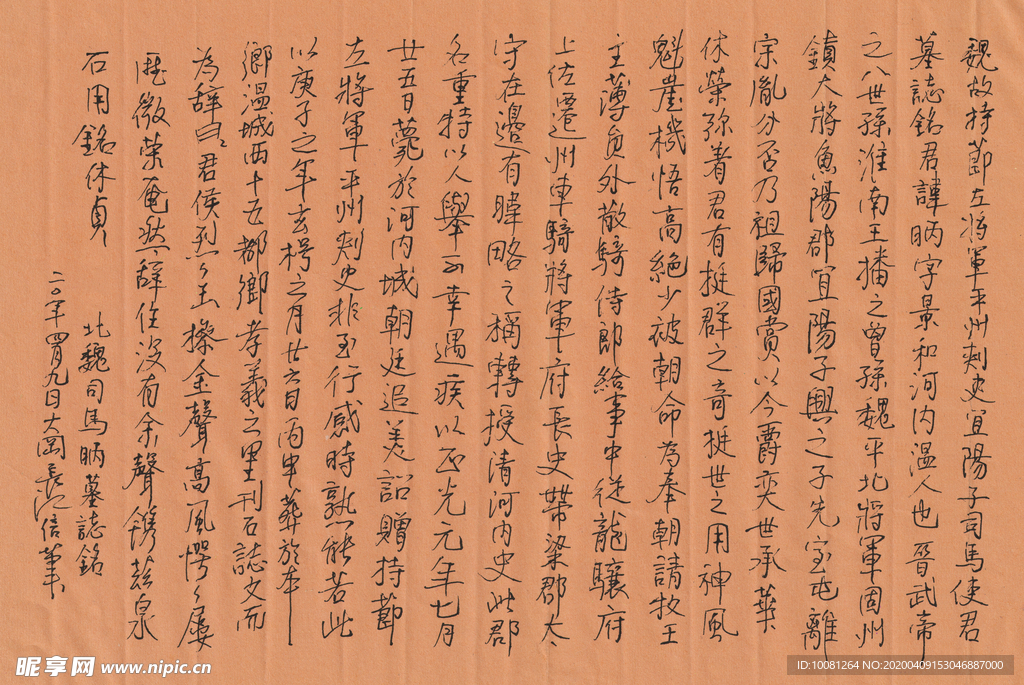 魏故持節左將軍平州刺史宜陽子司馬使君
墓誌銘君諱昞字景和河内温人也晉武帝
之八世孫淮南王播之曾孫魏平北將軍固州
鎮大將魚陽郡宜陽子興之子先室屯離
宗胤分否乃祖歸國賞以今爵奕世承華
休榮弥著君有挺群之奇挺世之用神風
魁崖機悟高絶少被朝命為奉朝請牧王
主薄員外散騎侍郎給事中從龍驤府
上佐遷州車騎將軍府長史帶梁郡太
守在邊有暐略之稱轉授清河内史此郡
名重特以人舉不幸遇疾以正光元年七月
廿五日薨於河内城朝廷追美詔贈持節
左將軍平州刺史非至行感時熟能若此
以庚子之年玄枵之月廿六日丙申葬於本
鄉温城西十五都鄉孝義之里刊石誌文而
為辭曰君侯烈々玉操金聲高風愕々屡
歷徵榮奄然辭住没有余聲鐫兹泉
石用銘休貞
北魏司馬昞墓誌銘
二〇年四月九日大岡長江信筆
昵享网 www.nipic.cn
ID:10081264 NO:20200409153046887000